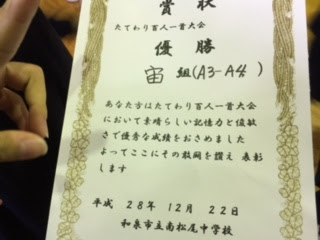 賞状
たてわり百人一首大会
優勝
宙組(A3-A4)
あなた方はたてわり百人一首大会
において素晴らしい記憶力と俊敏
さで優秀な成績をおさめました
よってここにその敢闘を讃え 表彰
します
平成 28年 12月 22日
和泉市立南松尾中学校